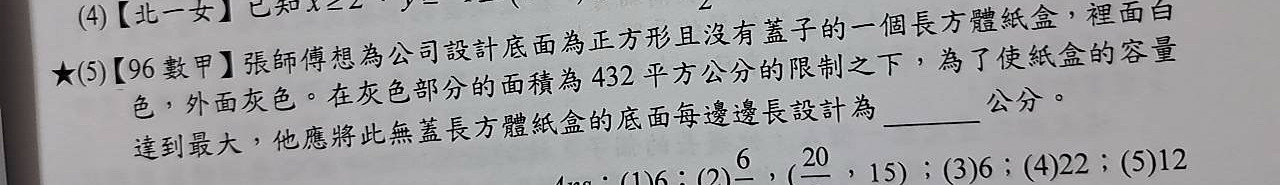 (4)【北一女】已知 x≥2
★(5)【96 數甲】張師傅想為公司設計底面為正方形且沒有蓋子的一個長方體紙盒，裡面白
色，外面灰色。在灰色部分的面積為 432 平方公分的限制之下，為了使紙盒的容量
達到最大，他應將此無蓋長方體紙盒的底面每邊邊長設計為______公分。
Ans：(1)6；(2) 6 ，( 20 ，15)；(3)6；(4)22；(5)12